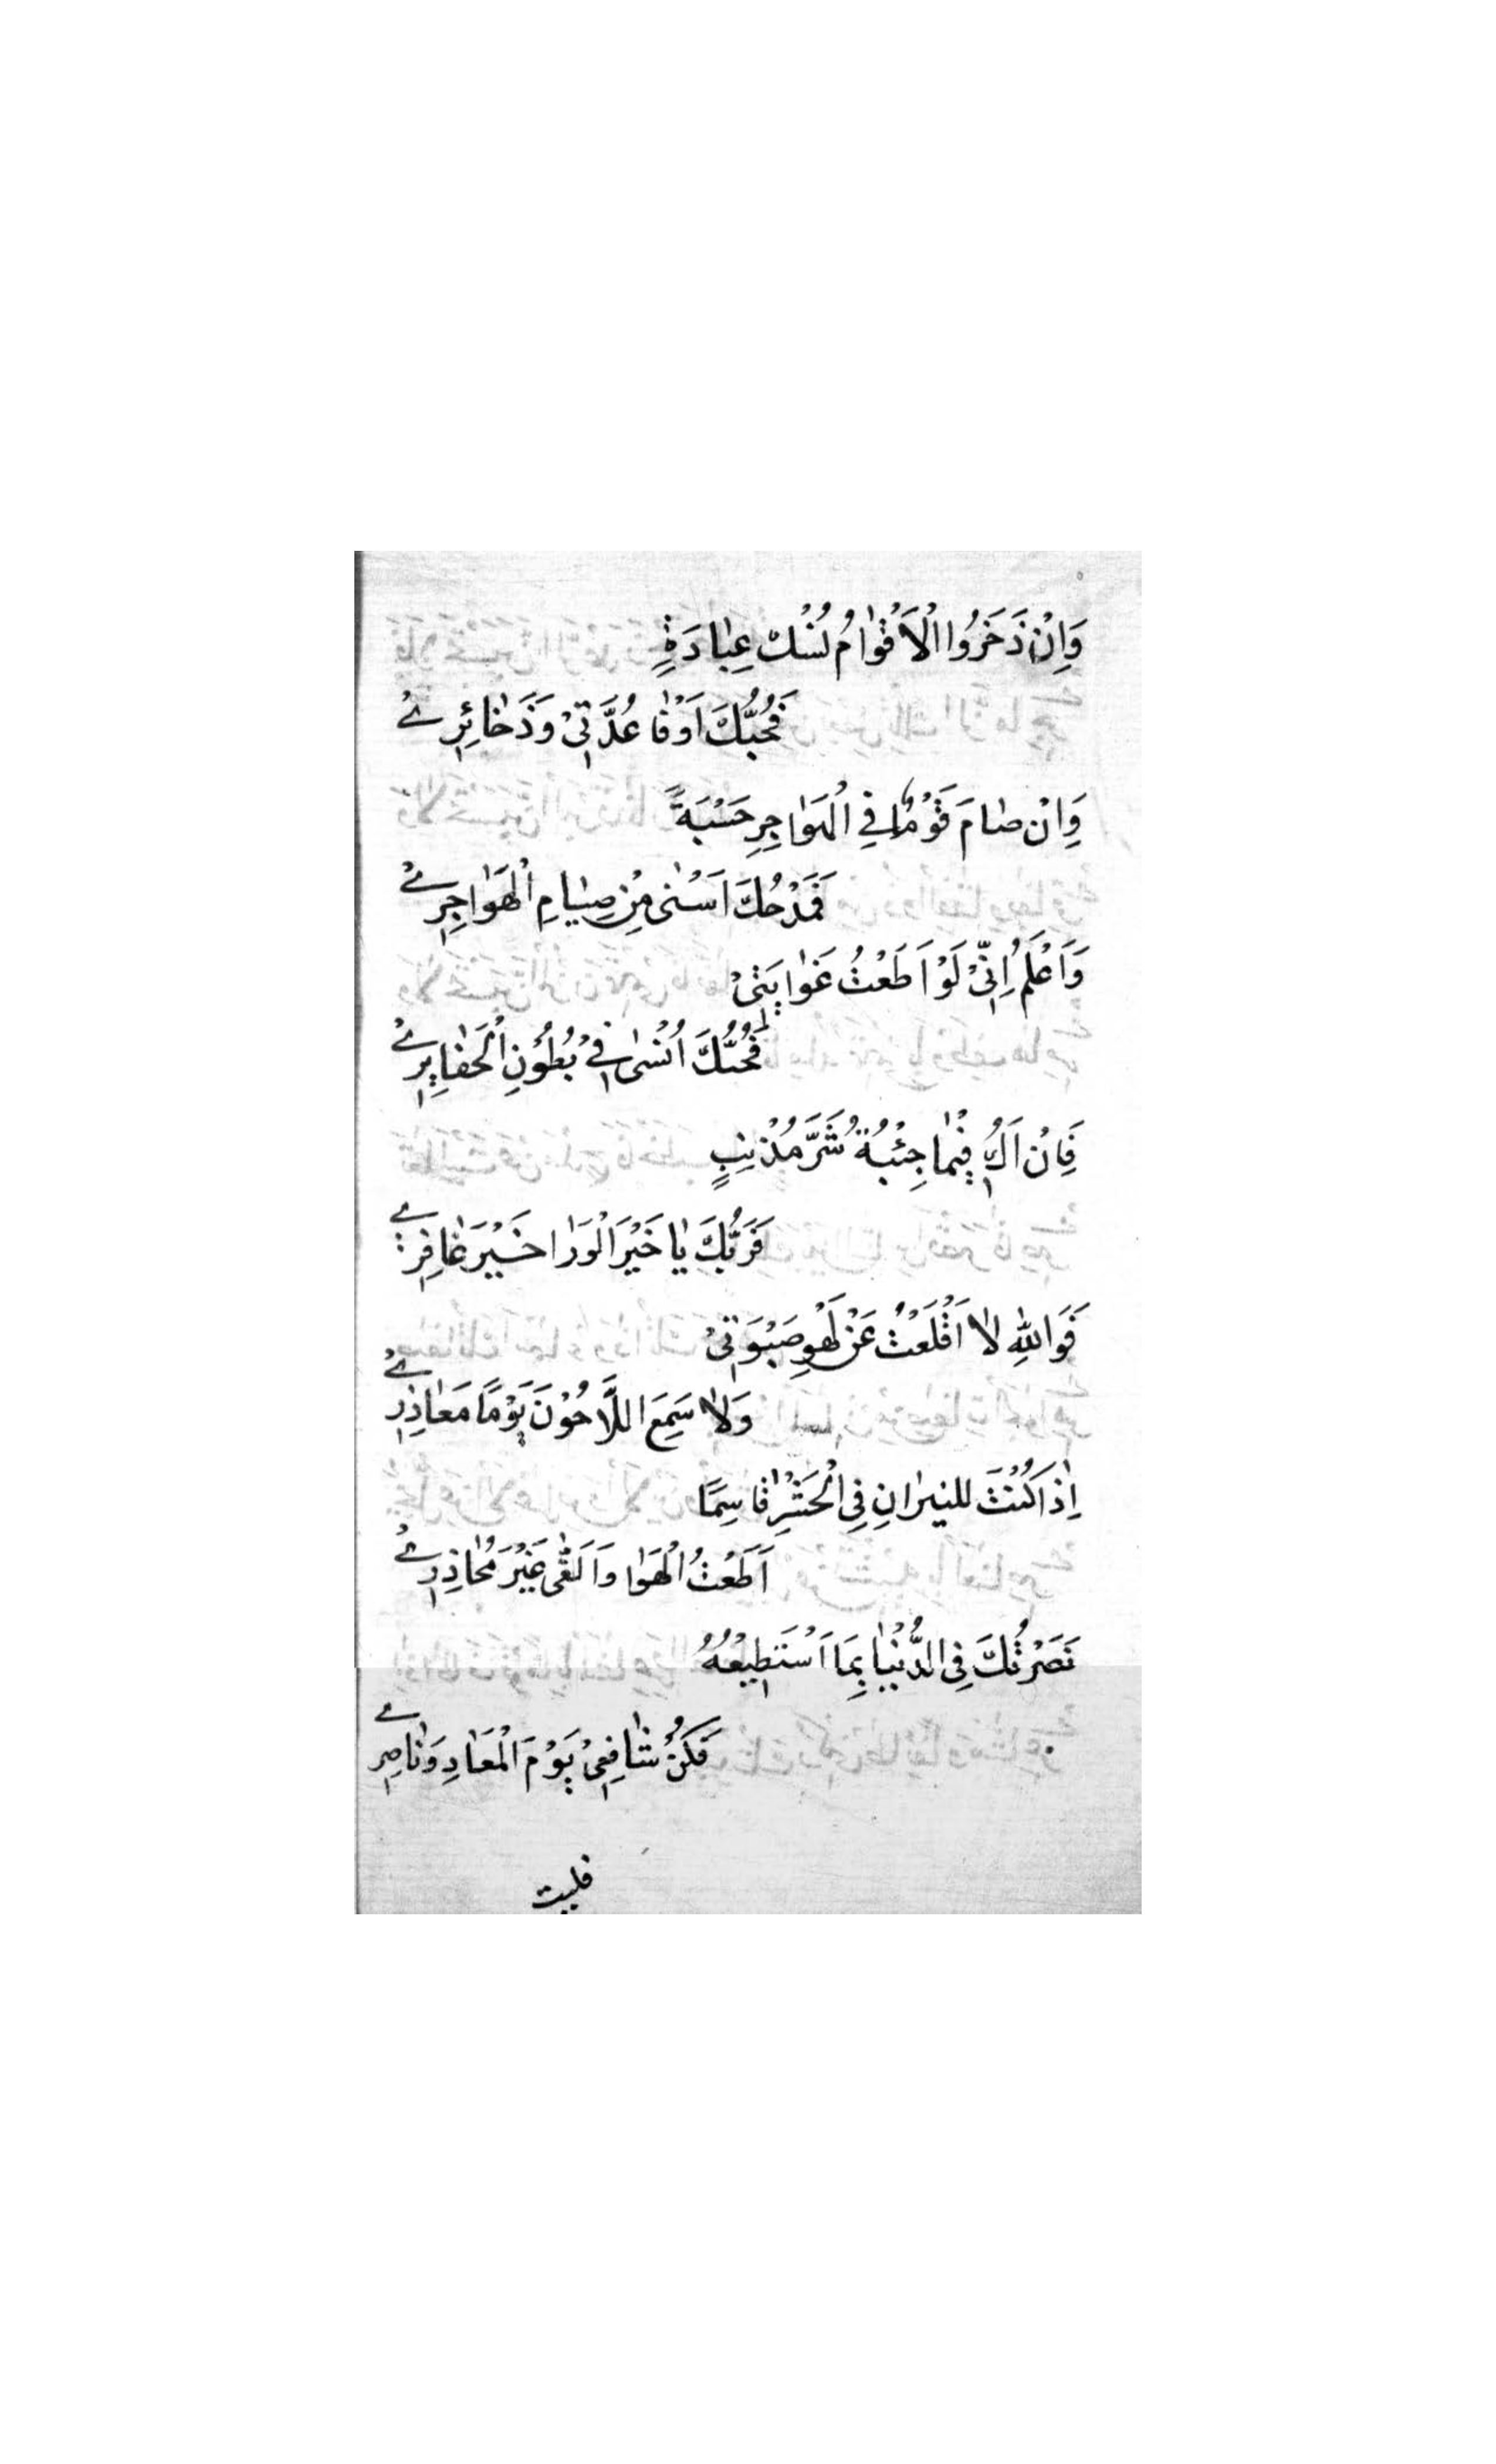 وَاِنْ ذَخَرُوا الْاَقْوٰامُ نُسْكَ عِبٰادَةٍ
فَحُبُّكَ اَوْفٰا عُدَّتِیْ وَذَخٰائِرِےْ
وَاِنْ صٰامَ قَوْمٌ فِي الْهَوٰاجِرِ حَسْبَةً
فَمَدْحُكَ اَسْنٰى مِنْ صِيٰامِ الْهَوٰاجِرِےْ
وَاَعْلَمُ اِنّیْ لَوْ اَطَعْتُ غَوٰايَتیْ
فَحُبُّكَ اُنْسٰى فِیْ بُطُوْنِ الْحَفٰايِرِےْ
فَاِنْ اَكُ فِيْمٰا جِئْتُهُ شَرَّ مُذْنِبٍ
فَرَبُّكَ يٰا خَيْرَ الْوَرٰا خَيْرَ غٰافِرِے
فَوَاللّٰهِ لٰا اَقْلَعْتُ عَنْ لَهْوِ صَبْوَتیْ
وَلٰا سَمِعَ اللَّاحُوْنَ يَوْمًا مَعٰاذِرِےْ
اِذٰا كُنْتَ للنيرٰانِ فِي الْحَشْرِ قٰاسِمًا
اَطَعْتُ الْهَوٰا وَالْغَّى غَيْرَ مُحٰاذِرِےْ
نَصَرْتُكَ فِي الدُّنْيٰا بِمَا اَسْتَطِيْعُهُ
فَكُنْ شٰافِعیْ يَوْمَ الْمَعٰادِ وَنٰاصِرِے
فليت